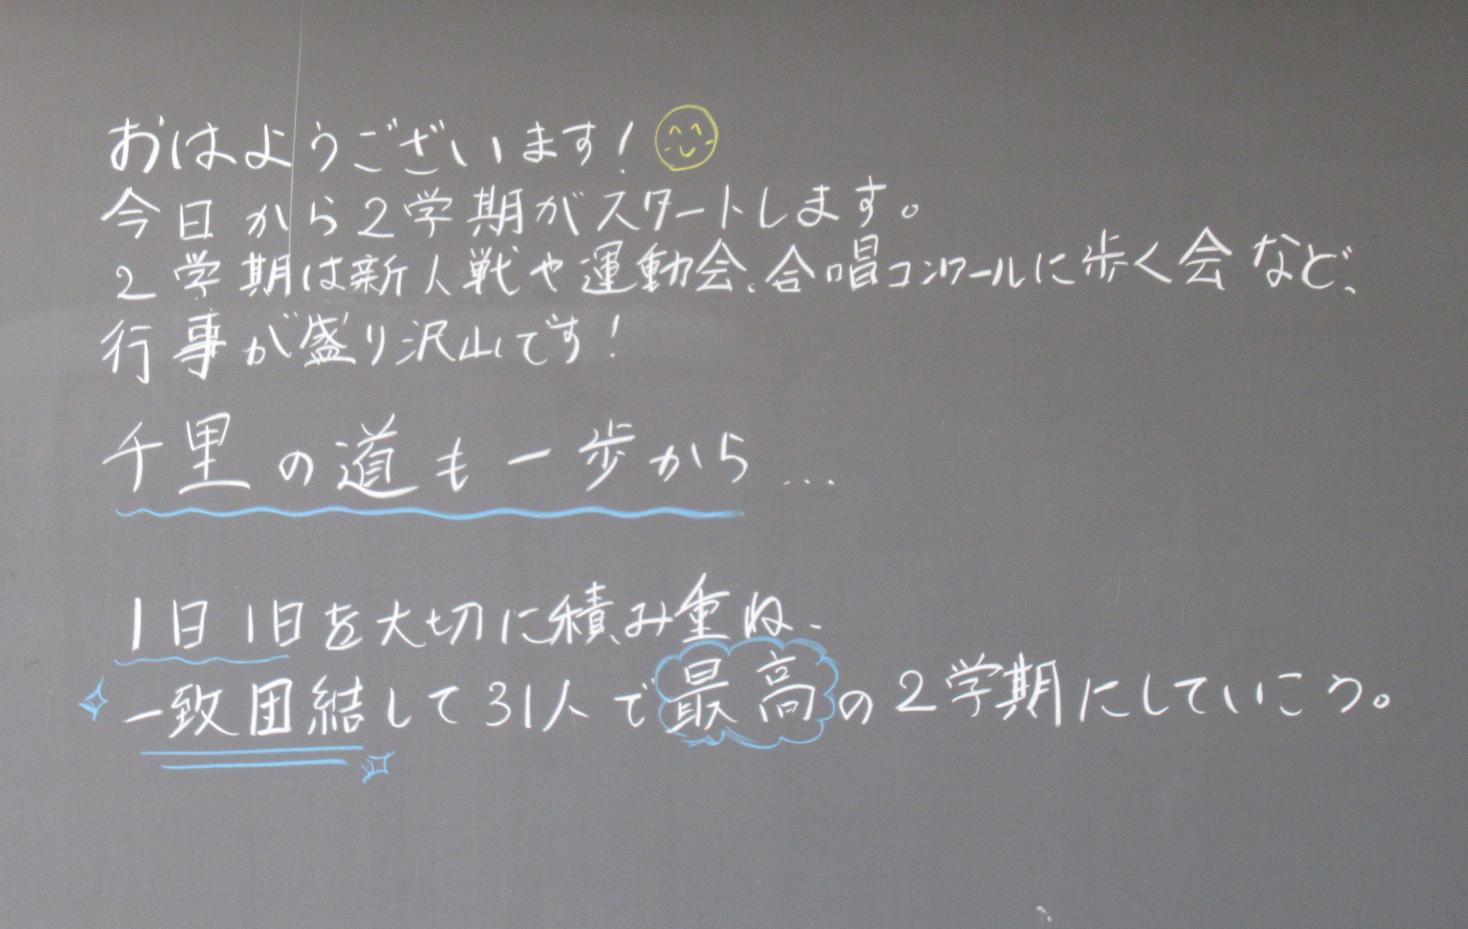 おはようございます!
今日から2学期がスタートします。
2学期は新人戦や運動会、合唱コンクールに歩く会など、
行事が盛り沢山です!
千里の道も一歩から...
1日1日を大切に積み重ね、
一致団結して31人で最高の2学期にしていこう。